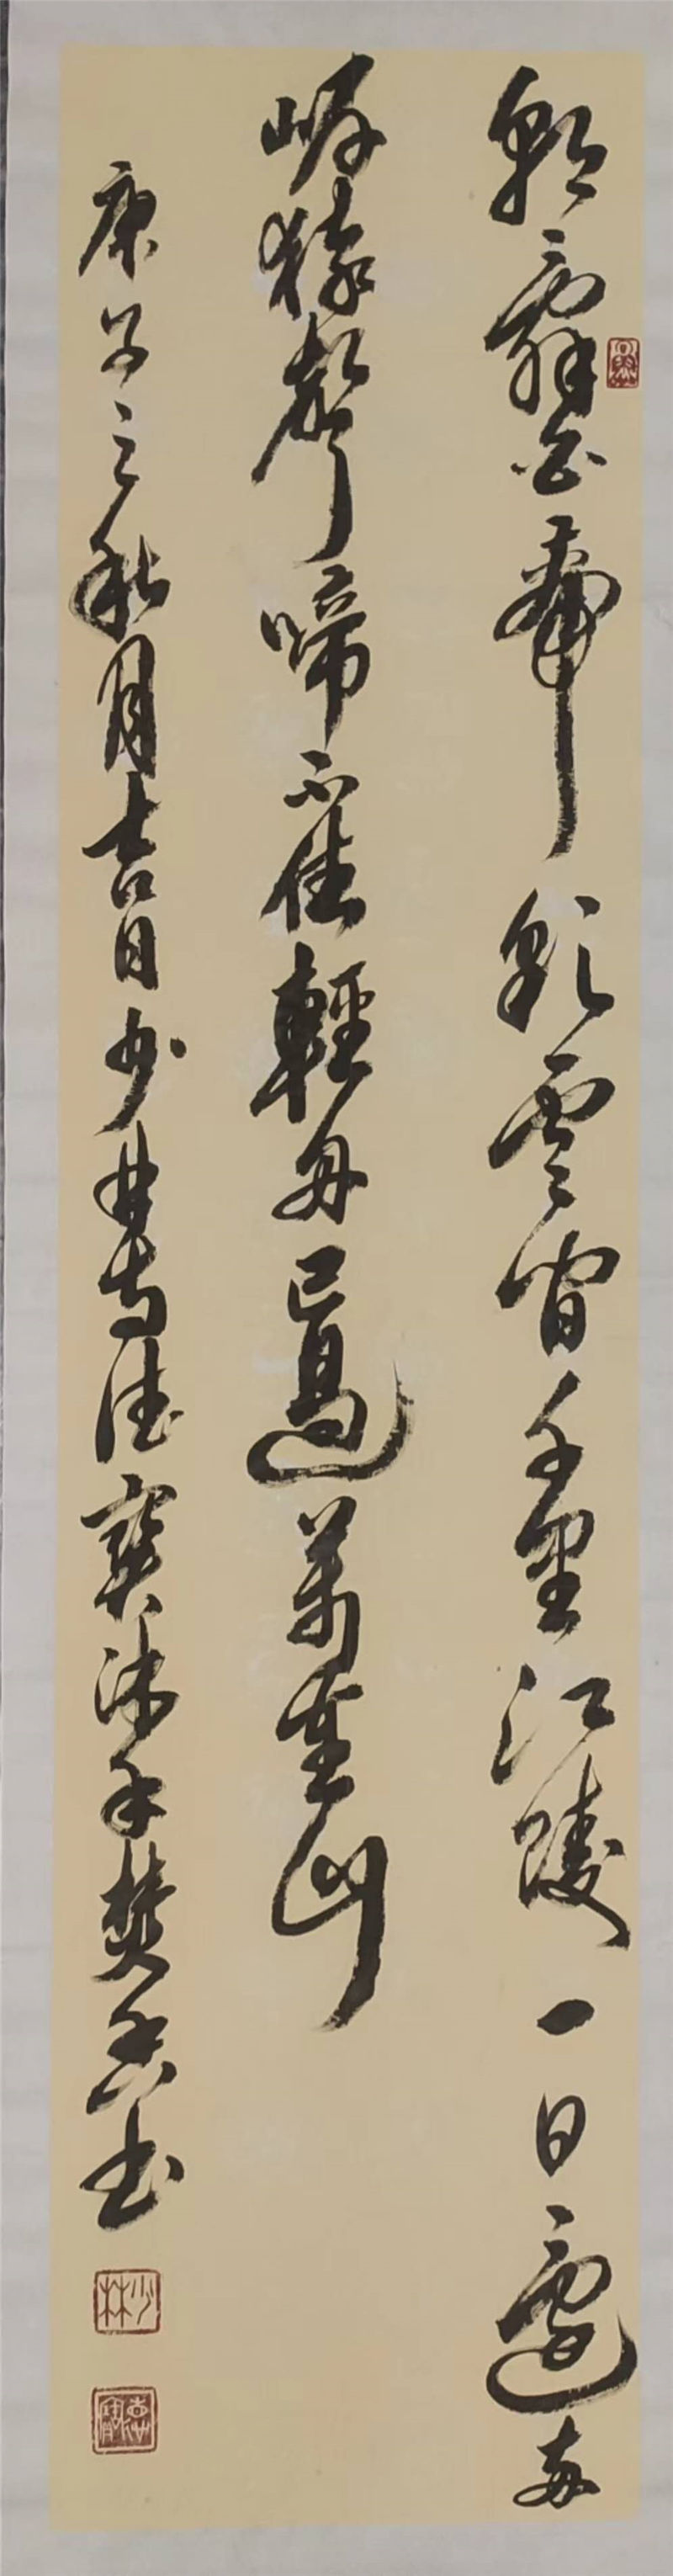 朝辭白帝彩雲間千里江陵一日還兩
岸猿聲啼不住輕舟已過萬重山
庚子之秋月吉日少林寺德寶沐手焚香书
少林